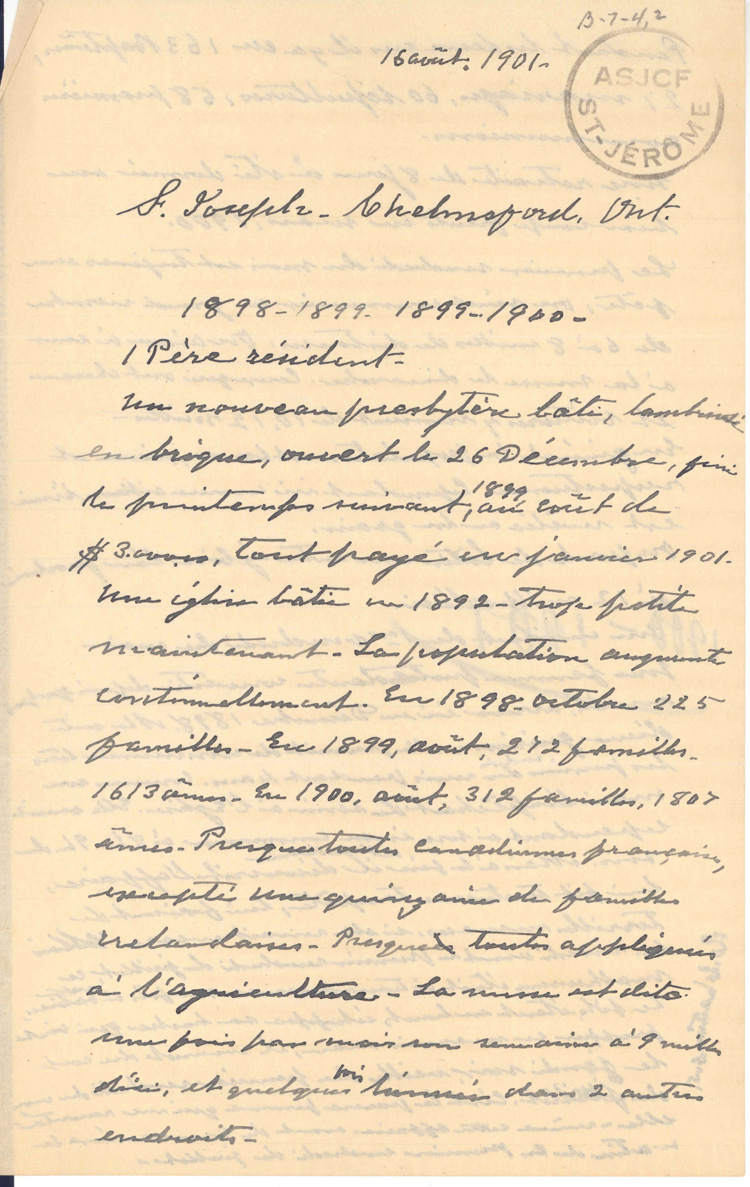 B-7-4,2
16 août. 1901-
ASJCF
ST-JÉRÔME
S. Joseph - Chelmsford, Ont.
1898-1899- 1899-1900-
1 Père résident-
Un nouveau presbytère bâti, lambrissé
en brique, ouvert le 26 Décembre, fini
1899
le printemps suivant, au coût de
tout payé en janvier 1901.
Une église bâtie en 1892 - trop petite
maintenant - La population augmente
continuellement. En 1898- octobre 225
familles - En 1899, août, 272 familles-
1613 âmes - En 1900, août, 312 familles, 1807
âmes - Presque toutes canadiennes françaises,
excepté une quinzaine de familles
irelandaises - Presque toutes appliqués
à l'agriculture - La messe est dite
une fois par mois sur semaine à 9 milles
d'ici, et quelques dans 2 autres
endroits -